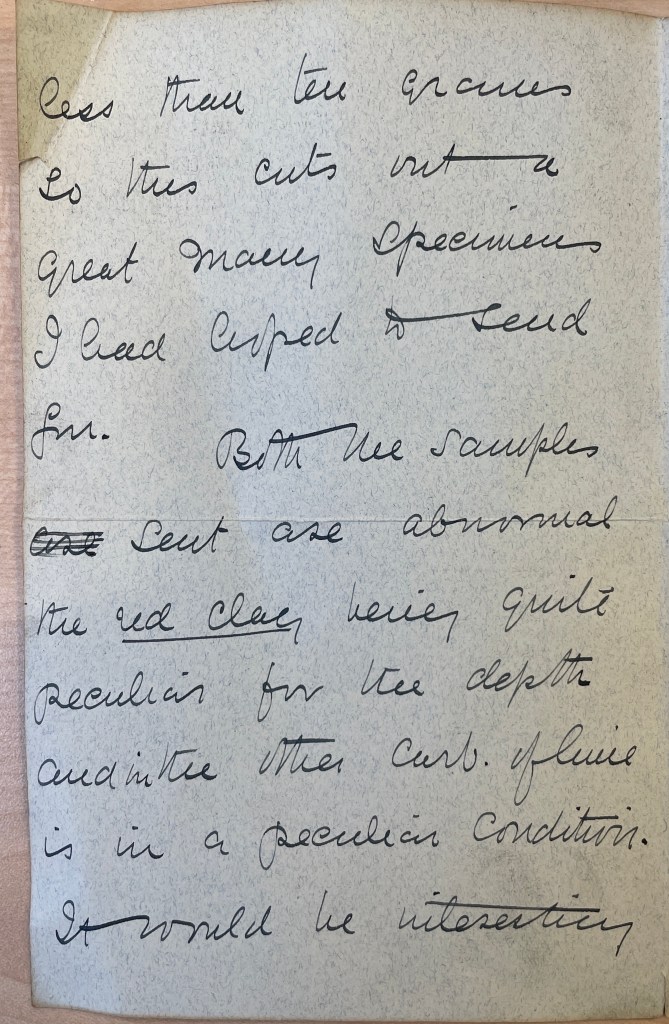 less than ten grams
so this cuts out a
great many specimens
I had hoped to send
for. Both the samples
are sent are abnormal
the red clay being quite
peculiar for the depth
and in the other Carb. of lime
is in a peculiar condition.
It would be interesting